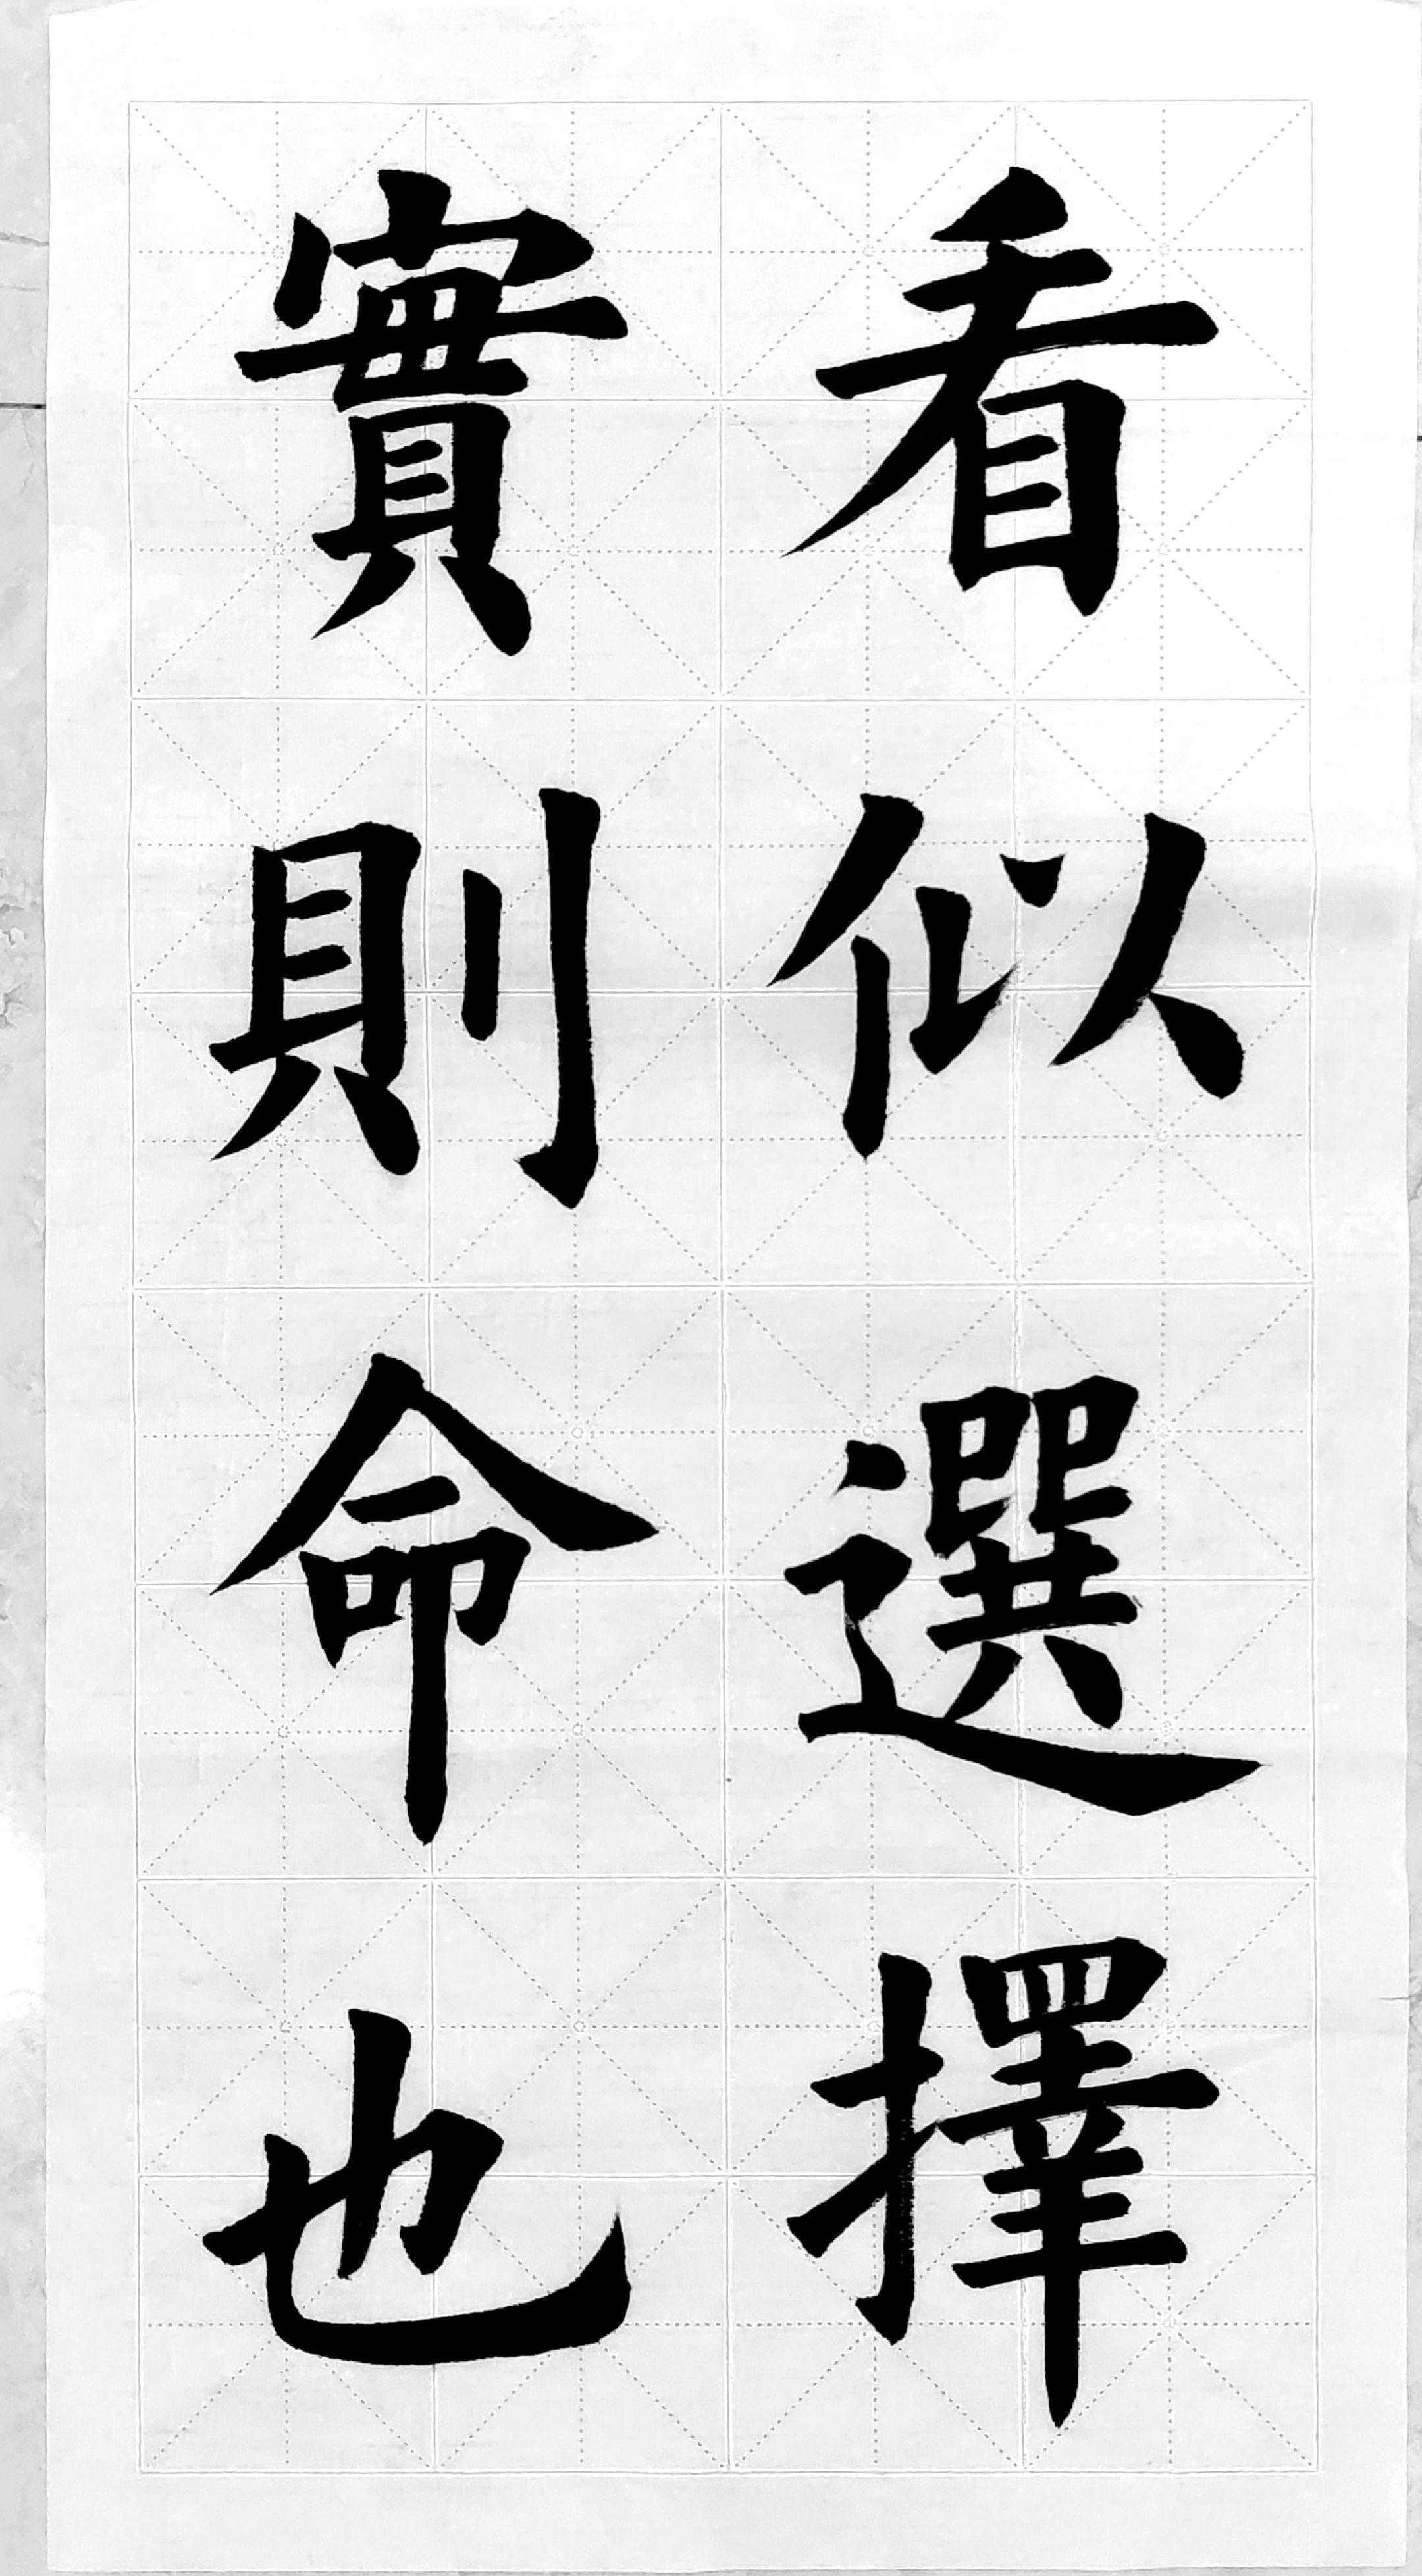 看似選擇
實則命也